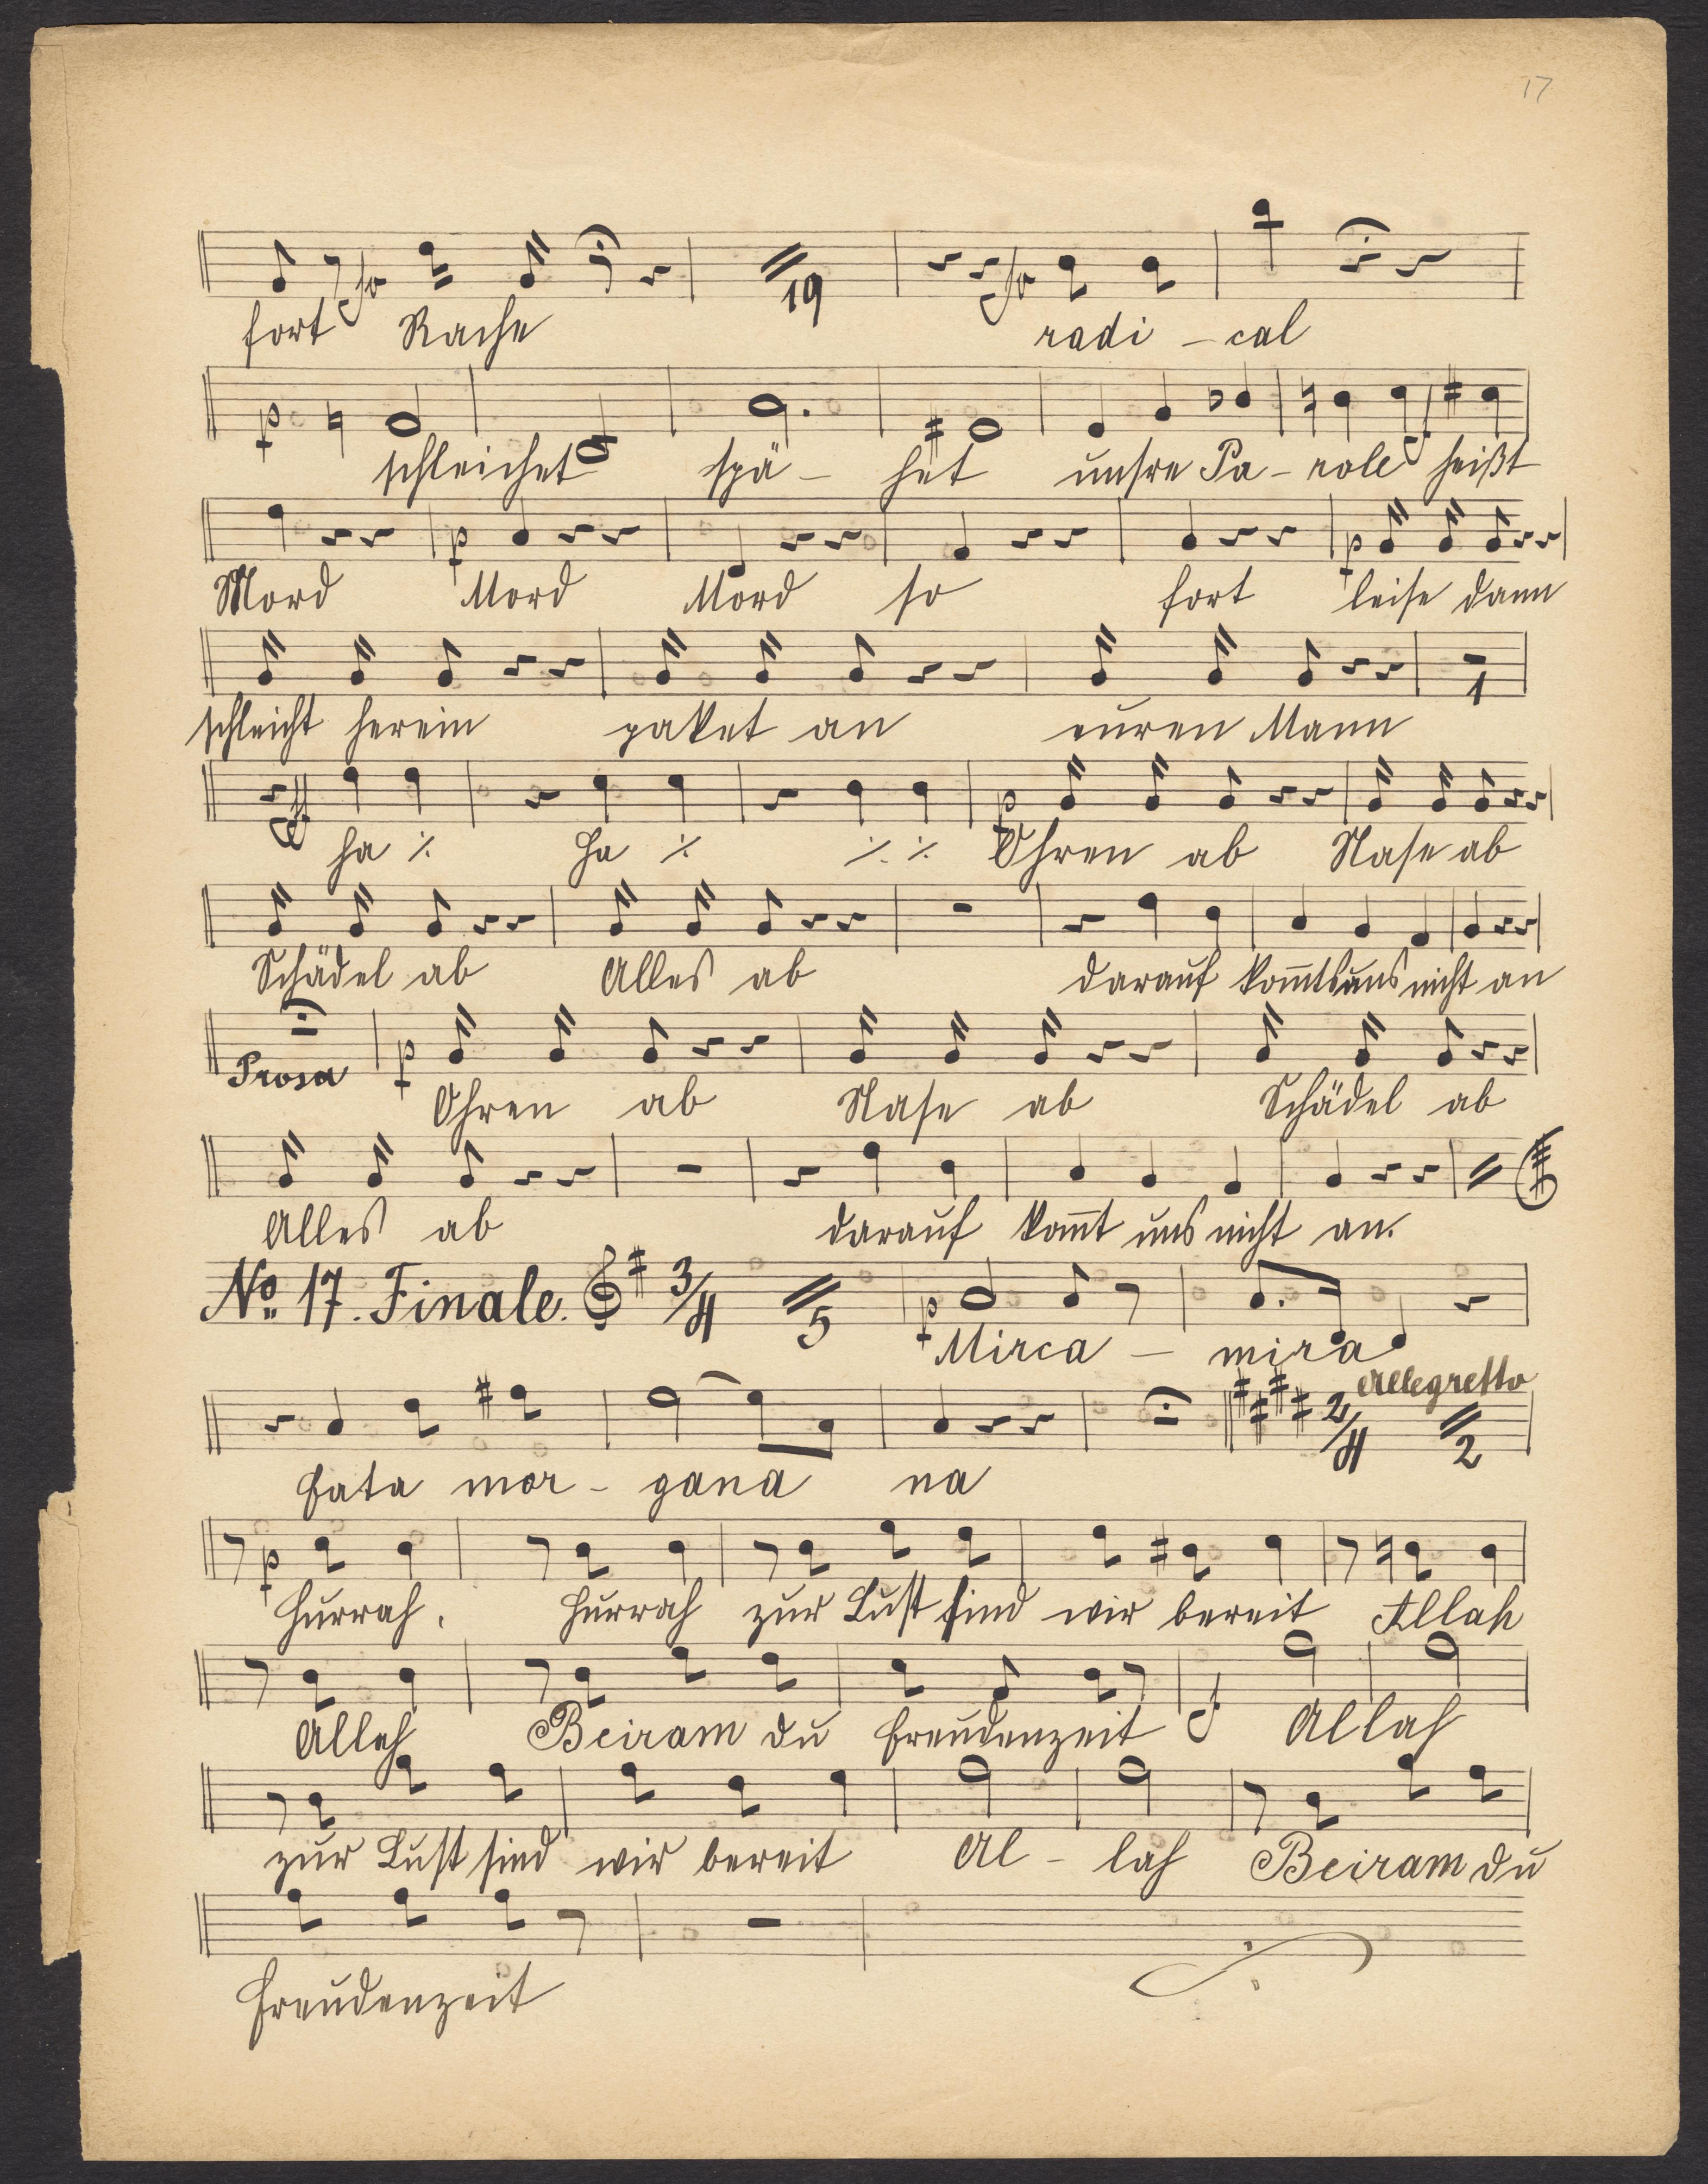 17
fort Rache 19 radi - cal
schleichet spä - het unsre Pa - role heißt
Mord Mord Mord so fort leise dann
schleicht herein paket an euren Mann 1
ha ٪ ha ٪ ٪ ٪ Ohren ab Nase ab
Schädel ab Alles ab darauf kom̅ts uns nicht an
Prosa Ohren ab Nase ab Schädel ab
Alles ab darauf kom̅t uns nicht an.
No 17. Finale. 3/4 5 Mirca - mira
Allegretto
2/4 2
fata mor - gana na
Hurrah. Hurrah zur Lust sind wir bereit Allah
Allah Beiram du Freudenzeit Allah
zur Lust sind wir bereit Al - lah Beiram du
Freudenzeit